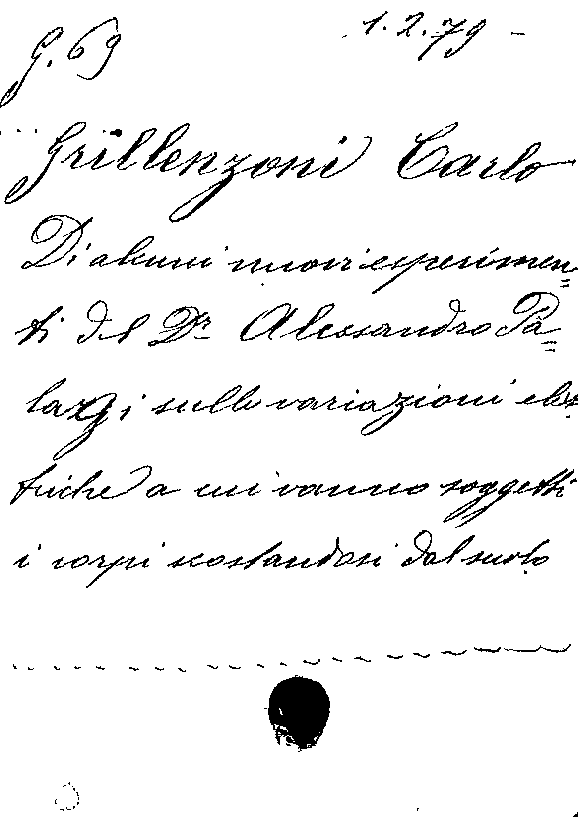 G. 69 1.2.79 -
Grillenzoni Carlo
Di alcuni nuovi esperimen=
ti del Dr Alessandro Pa=
lagi sulle variazioni elet
triche a cui vanno soggetti
i corpi scostandosi dal suolo